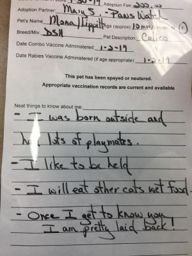 Adoption Fee
Adoption Partner: Mary S. - Paws Watch
Pet's Name
Breed/Mix DSH Pet Description: Calico
Date Combo Vaccine Administered 1-2-19
Date Rabies Vaccine Administered (if age appropriate) 1-2-19
This pet has been spayed or neutered.
Appropriate vaccination records are current and available
Neat things to know about me
- I was born outside and
had lots of playmates.
- I like to be held
- I will eat other cats wet food.
- Once I get to know you
I am pretty laid back!